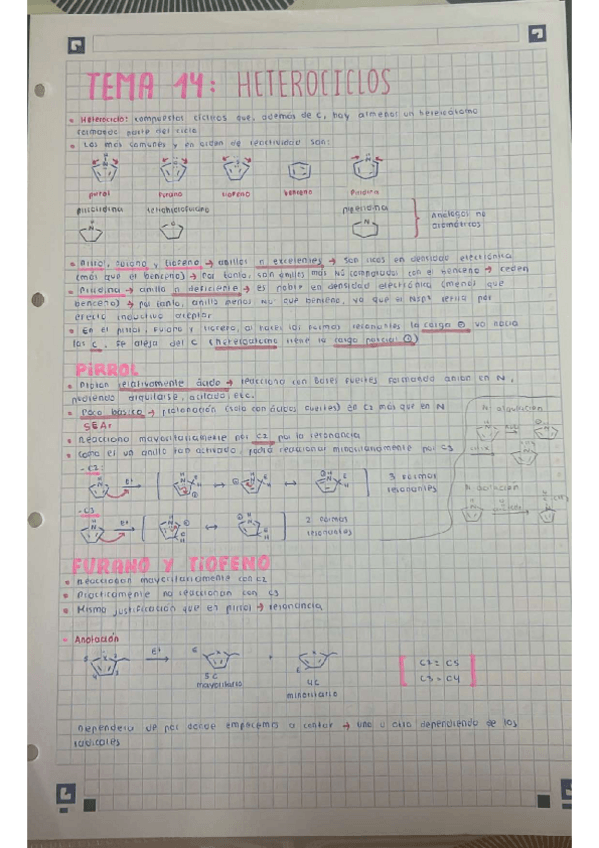 TEMA 14: HETEROCICLOS
Heterociclo: compuestos cíclicos que, además de C, hay al menos un heteroátomo
formando parte del ciclo
Los más comunes y en orden de reactividad son:
pirrol furano tiofeno benceno piridina
pirrolidina tetrahidrofurano piperidina
Análogos no
aromáticos
Pirrol, furano y tiofeno → anillos π excelentes → son ricos en densidad electrónica
(más que el benceno) → Por tanto, son anillos más Nu comparados con el benceno → ceden
Piridina → anillo π deficiente → es pobre en densidad electrónica (menos que
benceno) → por tanto, anillo menos Nu que benceno, ya que el Nsp² retira por
efecto inductivo aceptor
En el pirrol, furano y tiofeno, al hacer las formas resonantes la carga ⊖ va hacia
los C, se aleja del C (heteroátomo tiene la carga parcial ⊕)
PIRROL
Protón relativamente ácido → reacciona con bases fuertes formando anión en N,
pudiendo alquilarse, acilarse, etc.
Poco básico → protonación (solo con ácidos fuertes) de C2 más que en N
SEAr
Reacciona mayoritariamente por C2 por la resonancia
Como es un anillo tan activado, podrá reaccionar minoritariamente por C3
N alquilación
- C2:
E+
3 formas
resonantes
N acilación
- C3
E+
2 formas
resonantes
FURANO Y TIOFENO
Reaccionan mayoritariamente con C2
Prácticamente no reaccionan con C3
Misma justificación que el pirrol → resonancia
- Anotación
E+
5C
mayoritario
4C
minoritario
C2 = C5
C3 = C4
Dependerá de por donde empecemos a contar → uno u otro dependiendo de los
radicales